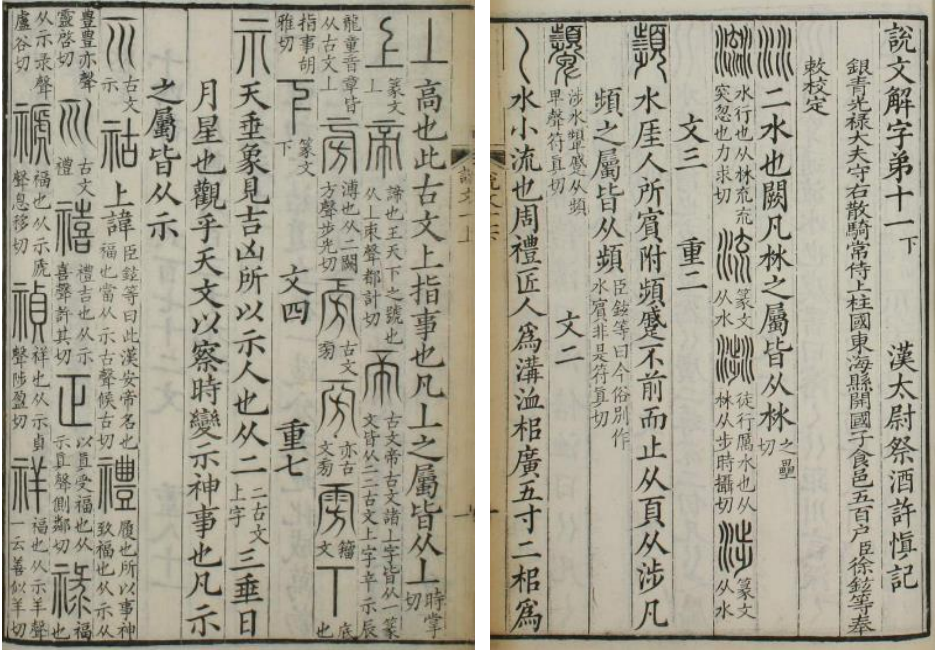 說文解字弟十一下　漢太尉祭酒許慎記
銀青光祿大夫守右散騎常侍上柱國東海縣開國子食邑五百户臣徐鉉等奉
敕校定
沝二水也闕凡沝之屬皆从沝之壘切
𣻏水行也从沝㐬㐬突忽也力求切流篆文从水𣻣徒行厲水也从沝从步時攝切涉篆文从水
文三　重二
頻水厓人所賓附頻蹙不前而止从頁从涉凡
頻之屬皆从頻臣鉉等曰今俗別作水賓非是符真切
顰涉水顰蹙从頻卑聲符真切
文二
𡿨水小流也周禮匠人爲溝洫梠廣五寸二梠爲
丄高也此古文上指事也凡丄之屬皆从丄時掌切
上篆文上帝諦也王天下之號也从丄朿聲都計切帝古文帝古文諸上字皆从一篆文皆从二二古文上字䇂示辰
龍童音章皆从古文上㫄溥也从二闕方聲步光切㫄古文㫄㫄亦古文㫄雱籒文丅底也
指事胡雅切下篆文下　文四　重七
示天垂象見吉凶所以示人也从二二古文上字三垂日
月星也觀乎天文以察時變示神事也凡示
之屬皆从示
𥘅古文示祜上諱臣鉉等曰此漢安帝名也福也當从示古聲候古切禮履也所以事神致福也从示从
豊豊亦聲靈啓切𠃞古文禮禧禮吉也从示喜聲許其切禛以眞受福也从示眞聲側鄰切祿福也
从示彔聲盧谷切禠福也从示虒聲息移切禎祥也从示貞聲陟盈切祥福也从示羊聲一云善似羊切